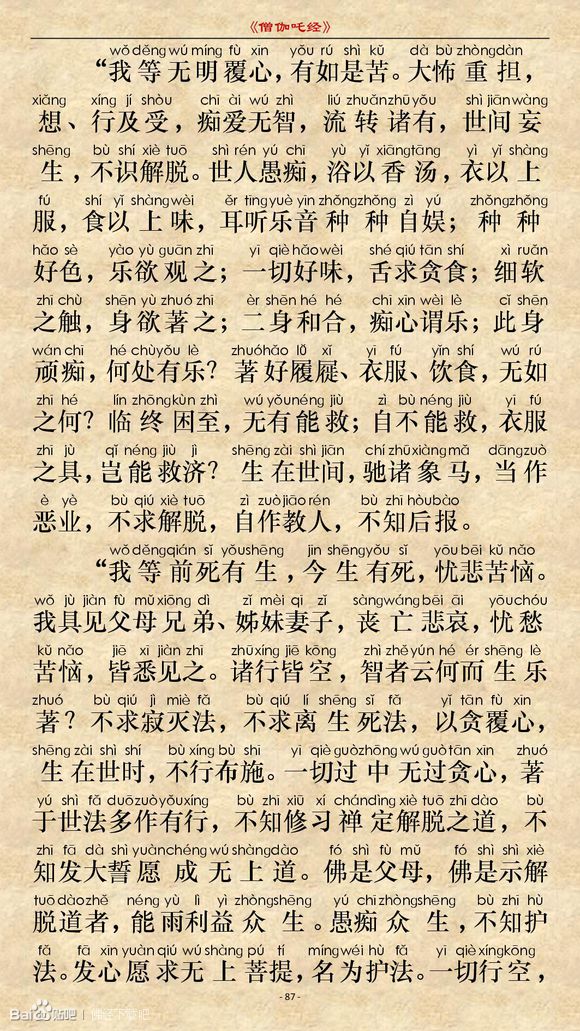 《僧伽吒经》
wǒ děng wú míng fù xīn yǒu rú shì kǔ dà bù zhòng dàn
“我等无明覆心，有如是苦。大怖重担，
xiǎng xíng jí shòu chī ài wú zhì liú zhuǎn zhū yǒu shì jiān wàng
想、行及受，痴爱无智，流转诸有，世间妄
shēng bù shí xiè tuō shì rén yú chī yù yǐ xiāng tāng yì yǐ shàng
生，不识解脱。世人愚痴，浴以香汤，衣以上
fú shí yǐ shàng wèi ěr tīng yuè yīn zhǒng zhǒng zì yú zhǒng zhǒng
服，食以上味，耳听乐音种种自娱；种种
hǎo sè yào yù guān zhī yī qiè hǎo wèi shé qiú tān shí xì ruǎn
好色，乐欲观之；一切好味，舌求贪食；细软
zhī chù shēn yù zhuó zhī èr shēn hé hé chī xīn wèi lè cǐ shēn
之触，身欲著之；二身和合，痴心谓乐；此身
wán chī hé chù yǒu lè zhuó hǎo lǚ xǐ yī fú yǐn shí wú rú
顽痴，何处有乐？著好履屣、衣服、饮食，无如
zhī hé lín zhōng kùn zhì wú yǒu néng jiù zì bù néng jiù yī fú
之何？临终困至，无有能救；自不能救，衣服
zhī jù qǐ néng jiù jì shēng zài shì jiān chí zhū xiàng mǎ dāng zuò
之具，岂能救济？生在世间，驰诸象马，当作
è yè bù qiú xiè tuō zì zuò jiāo rén bù zhī hòu bào
恶业，不求解脱，自作教人，不知后报。
wǒ děng qián sǐ yǒu shēng jīn shēng yǒu sǐ yōu bēi kǔ nǎo
“我等前死有生，今生有死，忧悲苦恼。
wǒ jù jiàn fù mǔ xiōng dì zǐ mèi qī zǐ sàng wáng bēi āi yōu chóu
我具见父母兄弟、姊妹妻子，丧亡悲哀，忧愁
kǔ nǎo jiē xī jiàn zhī zhū xíng jiē kōng zhì zhě yún hé ér shēng lè
苦恼，皆悉见之。诸行皆空，智者云何而生乐
zhuó bù qiú jì miè fǎ bù qiú lí shēng sǐ fǎ yǐ tān fù xīn
著？不求寂灭法，不求离生死法，以贪覆心，
shēng zài shì shí bù xíng bù shī yī qiè guò zhōng wú guò tān xīn zhuó
生在世时，不行布施。一切过中无过贪心，著
yú shì fǎ duō zuò yǒu xíng bù zhī xiū xí chán dìng xiè tuō zhī dào bù
于世法多作有行，不知修习禅定解脱之道，不
zhī fā dà shì yuàn chéng wú shàng dào fó shì fù mǔ fó shì shì xiè
知发大誓愿成无上道。佛是父母，佛是示解
tuō dào zhě néng yú lì yì zhòng shēng yú chī zhòng shēng bù zhī hù
脱道者，能雨利益众生。愚痴众生，不知护
fǎ fā xīn yuàn qiú wú shàng pú tí míng wéi hù fǎ yī qiè xíng kōng
法。发心愿求无上菩提，名为护法。一切行空，
- 87 -
Bai贴吧 | 佛经下载吧